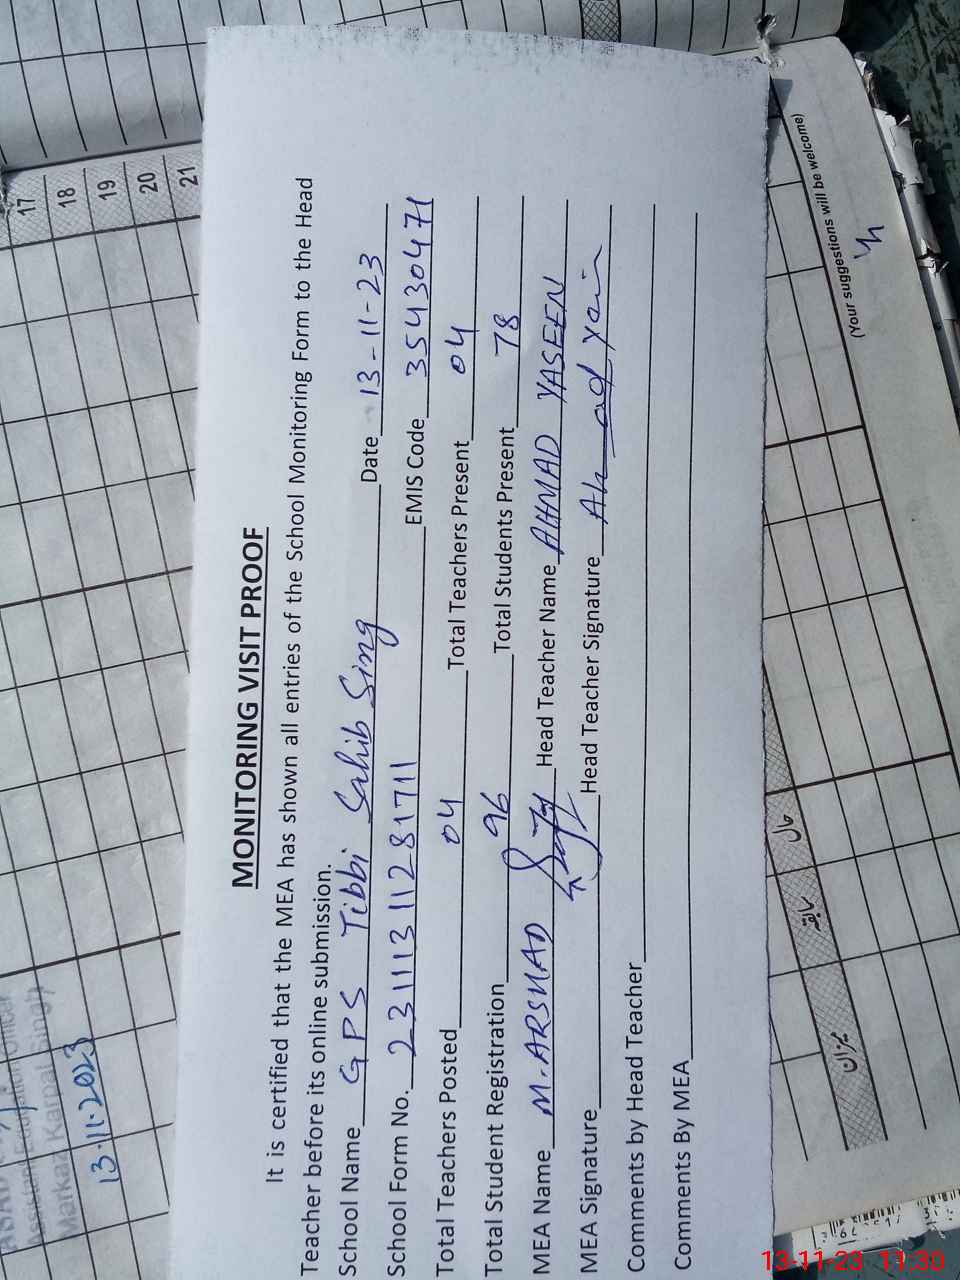 MONITORING VISIT PROOF
It is certified that the MEA has shown all entries of the School Monitoring Form to the Head
Teacher before its online submission.
School Name GPS Tibbi Sahib Sing Date 13-11-23
School Form No. 23111311281711 EMIS Code 35430471
Total Teachers Posted 04 Total Teachers Present 04
Total Student Registration 96 Total Students Present 78
MEA Name M. ARSHAD Head Teacher Name AHMAD YASEEN
MEA Signature Head Teacher Signature
Comments by Head Teacher
Comments By MEA
17
18
19
20
21
Assistant Education Officer
Markaz Karpal Singh
13-11-2023
(Your suggestions will be welcome)
میزان
سابقہ
حال
13-11-23 11:30